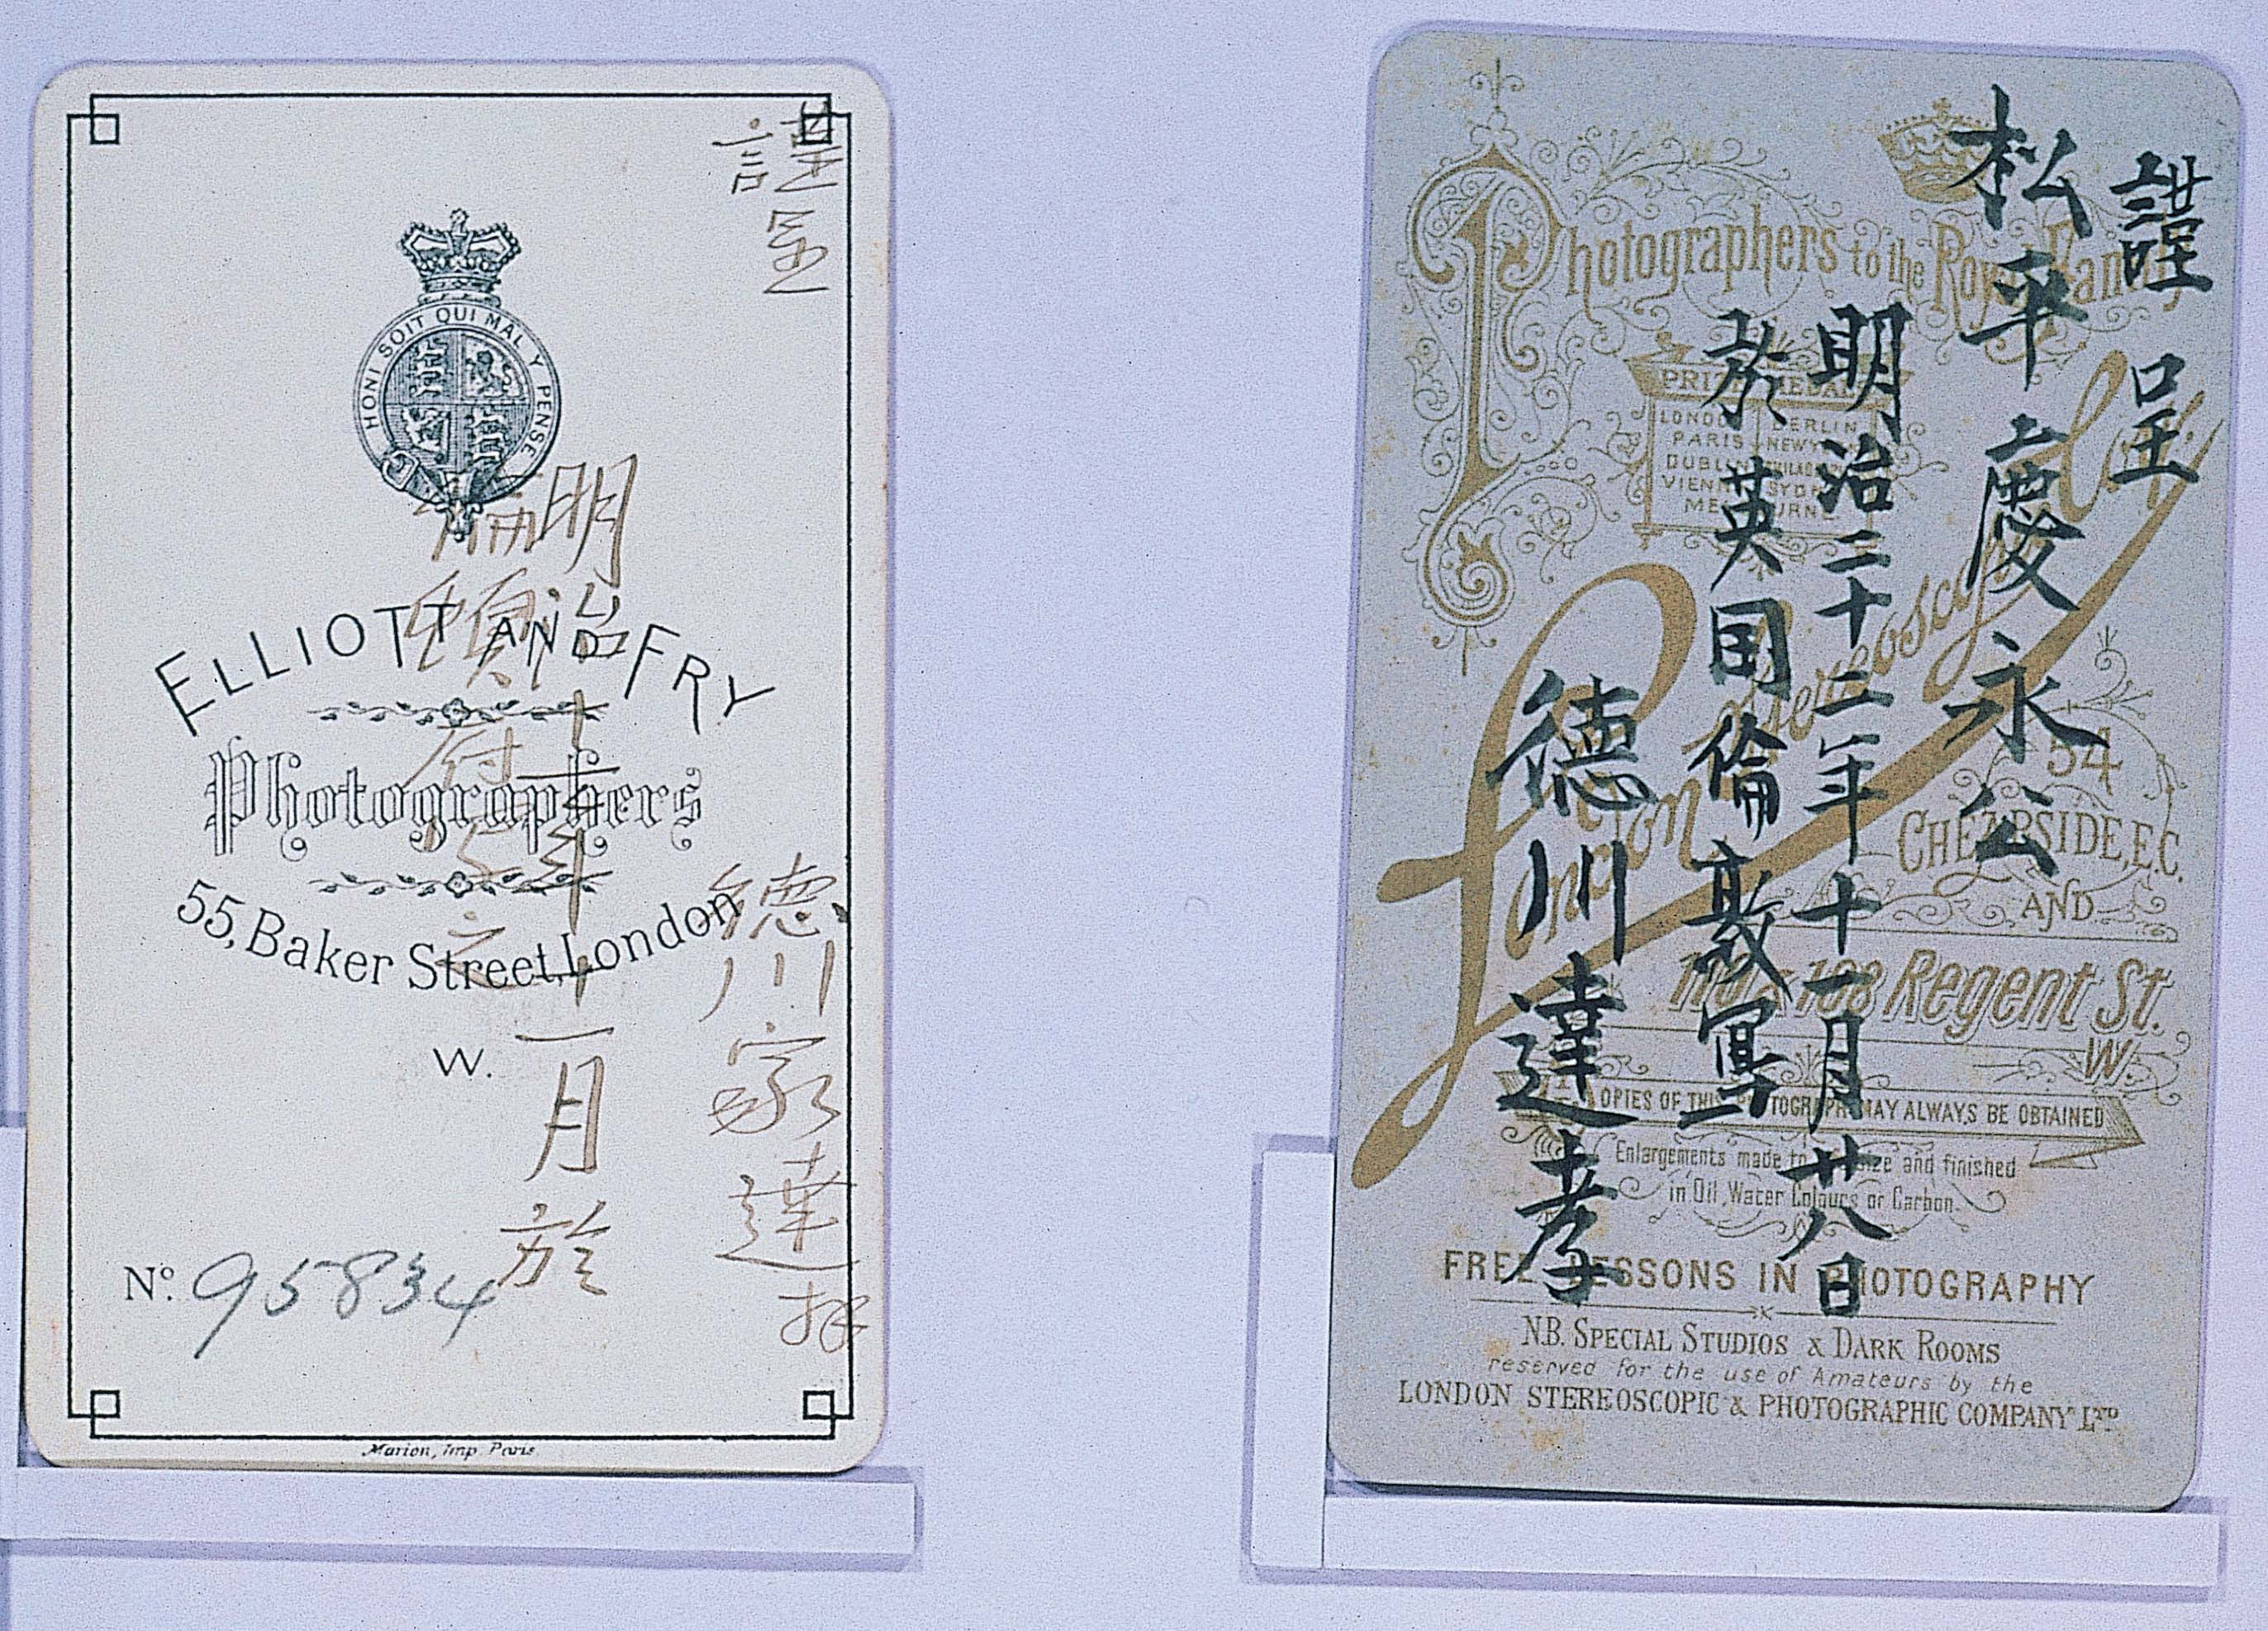 謹呈
徳川家達拝
明治十二年十一月於
倫頓府
之
HONI SOIT QUI MAL Y PENSE
ELLIOTT AND FRY
Photographers
55, Baker Street, London
W.
No. 95834
Marion, Imp. Paris
謹呈
松平慶永公
明治二十二年十一月廿八日
於英国倫敦写
徳川達孝
Photographers to the Royal Family
PRIZE MEDALS
LONDON BERLIN
PARIS NEWYORK
DUBLIN PHILADELPHIA
VIENNA SYDNEY
MELBOURNE
London Stereoscopic Coy
54
CHEAPSIDE, E.C.
AND
110 & 108 Regent St.
W.
COPIES OF THIS PHOTOGRAPH MAY ALWAYS BE OBTAINED
Enlargements made to size and finished
in Oil, Water Colours or Carbon.
FREE LESSONS IN PHOTOGRAPHY
N.B. SPECIAL STUDIOS & DARK ROOMS
reserved for the use of Amateurs by the
LONDON STEREOSCOPIC & PHOTOGRAPHIC COMPANY LTD